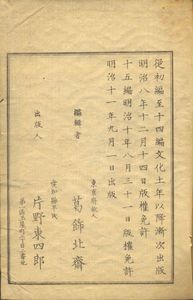 従初編至十四編文化十年以降漸次出版
明治八年十二月十四日版權免許
十五編明治十年八月三十一日版權免許
明治十一年九月一日出版
編輯者
東京府故人
葛飾北齋
出版人
愛知縣平民
片野東四郎